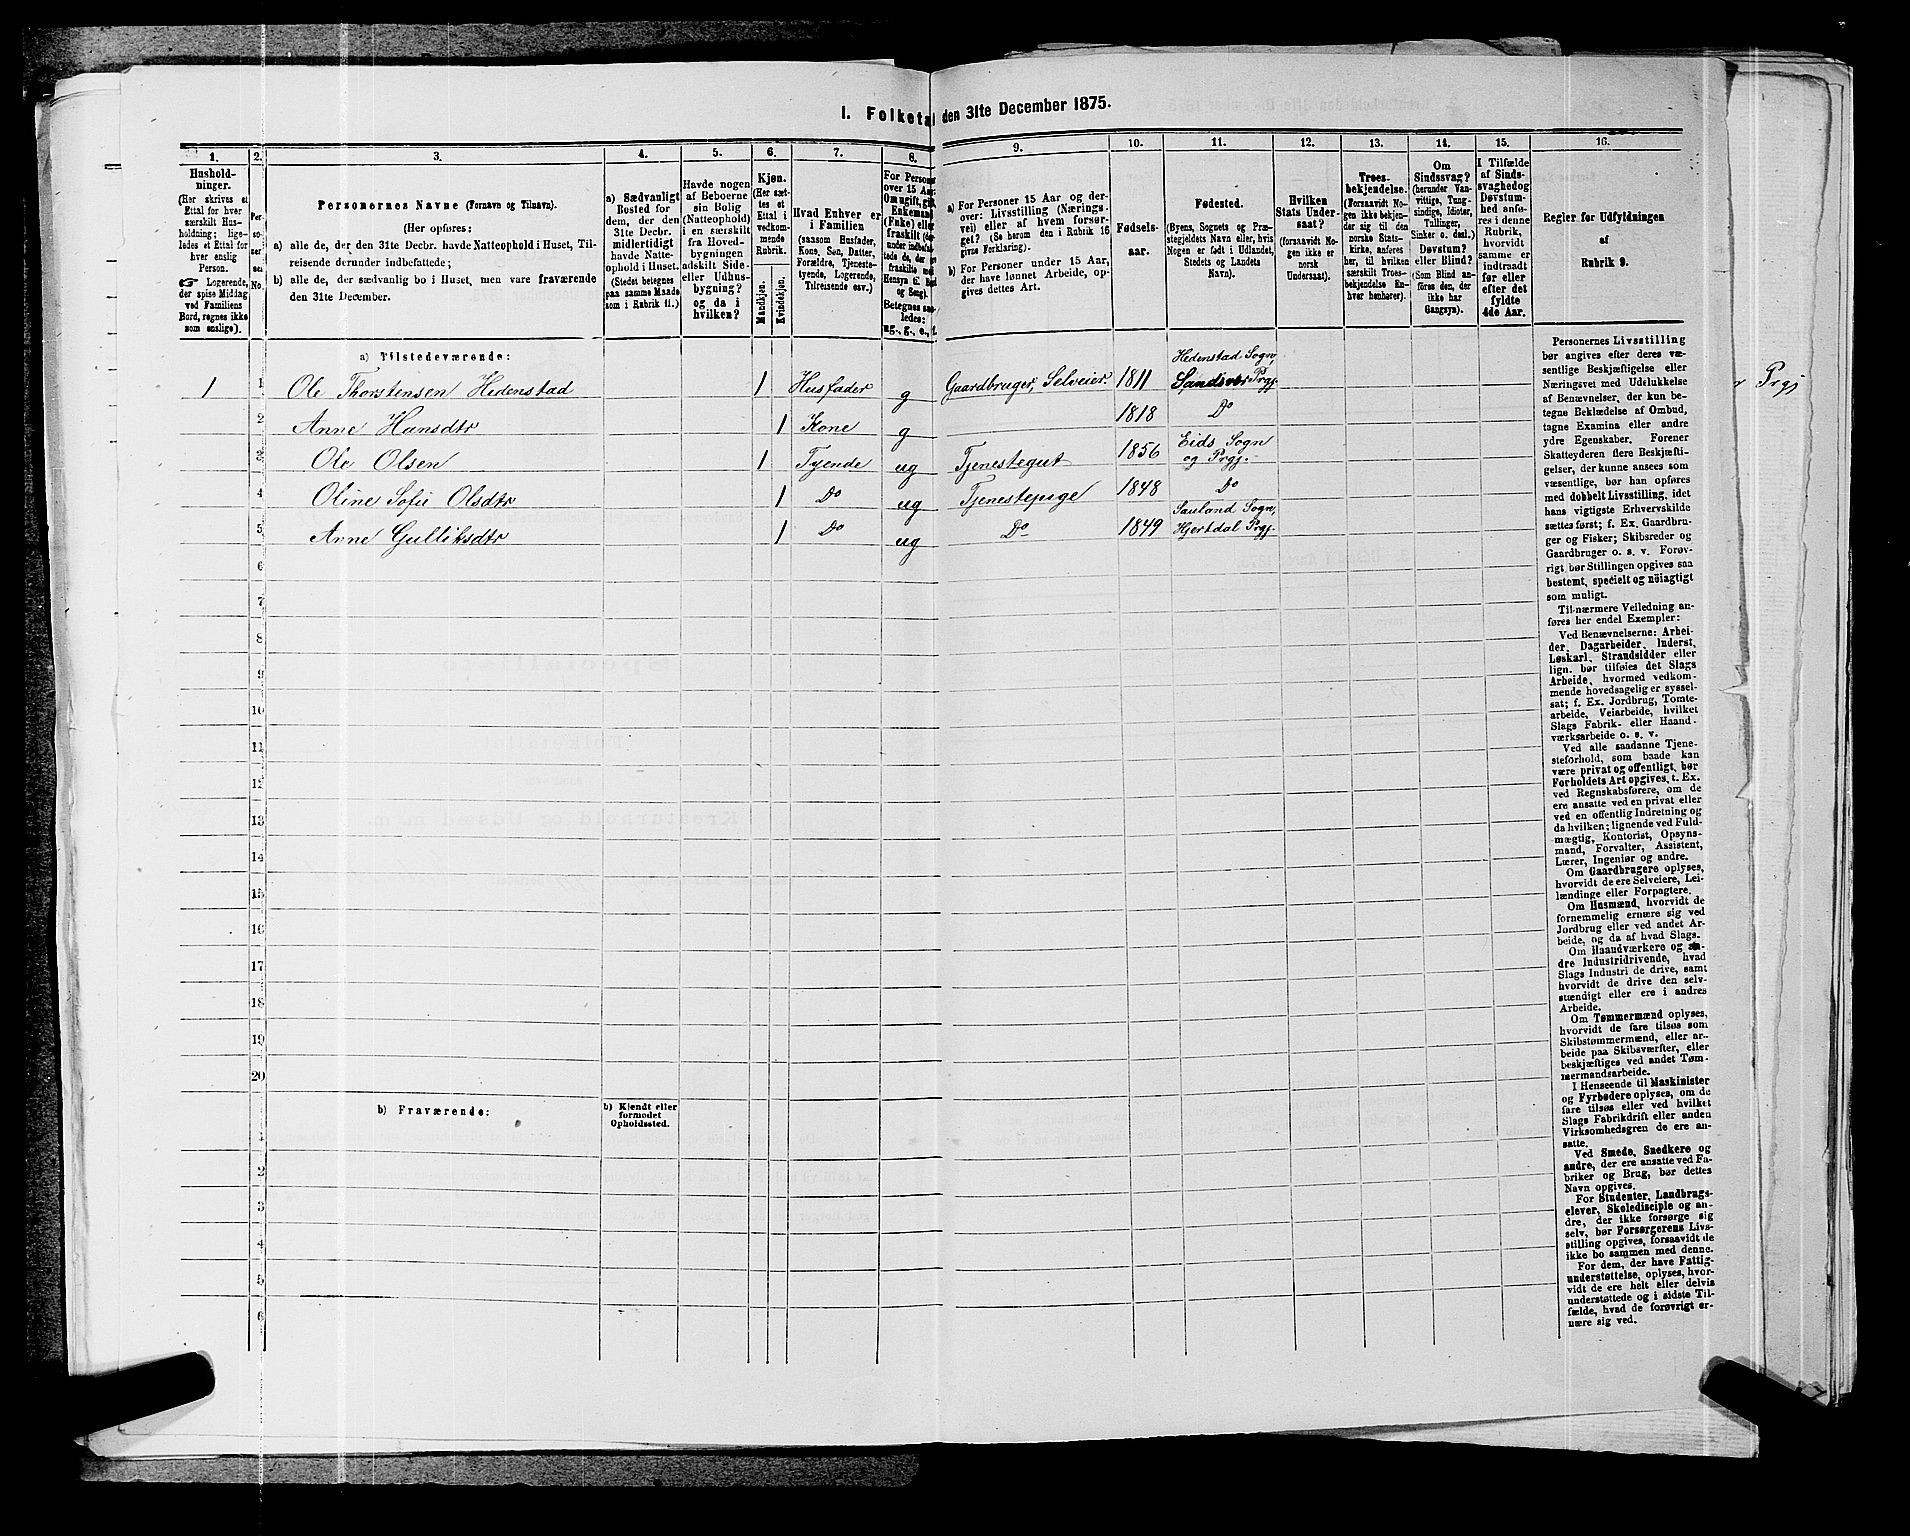 I. Folketal den 31te December 1875.
1.
2.
3.
4.
5.
6.
7.
8.
9.
10.
11.
12.
13.
14.
15.
16.
Hushold-
ninger.
(Her skrives et
Ettal for hver
særskilt Hus-
holdning; lige-
ledes et Ettal for
hver enslig
Person.
☞ Logerende,
der spise Middag
ved Familiens
Bord, regnes ikke
som enslige).
Per-
so-
ner-
nes
No.
Personernes Navne (Fornavn og Tilnavn).
(Her opføres:
a) alle de, der den 31te Decbr. havde Natteophold i Huset, Til-
reisende derunder indbefattede;
b) alle de, der sædvanlig bo i Huset, men vare fraværende
den 31te December.
a) Sædvanligt
Bosted for
dem, der den
31te Decbr.
midlertidigt
havde Natte-
ophold i Huset.
(Stedet betegnes
paa samme Maade
som i Rubrik 11.)
Havde nogen
af Beboerne
sin Bolig
(Natteophold)
i en særskilt
fra Hoved-
bygningen
adskilt Side-
eller Udhus-
bygning?
og da i
hvilken?
Kjøn.
(Her sæt-
tes et
Ettal i
vedkom-
mende
Rubrik.
Mandkjøn.
Kvindekjøn.
Hvad Enhver er
i Familien
(saasom Husfader,
Kone, Søn, Datter,
Forældre, Tjeneste-
tyende, Logerende,
Tilreisende osv.)
For Personer
over 15 Aar:
Om ugift, gift,
Enkemand
(Enke) eller
fraskilt (der-
under indbefat-
tede de, der ere
fraskilte med
Hensyn til Bord
og Seng).
Betegnes saa-
ledes:
ug., g., e., f.
a) For Personer 15 Aar og der-
over: Livsstilling (Nærings-
vei) eller af hvem forsør-
get? (Se herom den i Rubrik 16
givne Forklaring).
b) For Personer under 15 Aar,
der have lønnet Arbeide, op-
gives dettes Art.
Fødsels-
aar.
Fødested.
(Byens, Sognets og Præ-
stegjeldets Navn eller, hvis
Nogen er født i Udlandet,
Stedets og Landets
Navn).
Hvilken
Stats Under-
saat?
(forsaavidt No-
gen ikke er
norsk
Undersaat).
Troes-
bekjendelse.
(Forsaavidt No-
gen ikke bekjen-
der sig til den
norske Stats-
kirke, anføres
her, til hvilken
særskilt Troes-
bekjendelse En-
hver henhører).
Om
Sindssvag?
(herunder Van-
vittige, Tung-
sindige, Idioter,
Tullinger,
Sinker o. desl.)
Døvstum?
eller Blind?
(Som Blind an-
føres den, der
ikke har
Gangsyn).
I Tilfælde
af Sinds-
svaghed og
Døvstum-
hed anfø-
res i denne
Rubrik,
hvorvidt
samme er
indtraadt
før eller
efter det
fyldte
4de Aar.
Regler før Udfyldningen
af
Rubrik 9.
a) Tilstedeværende:
Hedenstad Sogn,
1 1 Ole Thorstensen Hedenstad 1 Husfader g Gaardbruger, Selveier. 1811 Sandsver Prgj.
2 Anne Hansdtr 1 Kone g 1818 Do
3 Ole Olsen 1 Tyende ug Tjenestegut 1856 Eids Sogn
og Prgj.
4 Oline Sofie Olsdtr 1 Do ug Tjenestepige 1848 Do
Sauland Sogn,
5 Anne Gulliksdtr 1 Do ug Do 1849 Hjertdal Prgj.
6
7
8
9
10
11
12
13
14
15
16
17
18
19
20
b) Fraværende:
b) Kjendt eller
formodet
Opholdssted.
1
2
3
4
5
6
Personernes Livsstilling
bør angives efter deres væ-
sentlige Beskjæftigelse eller
Næringsvei med Udelukkelse
af Benævnelser, der kun be-
tegne Beklædelse af Ombud,
tagne Examina eller andre
ydre Egenskaber. Forener
Skatteyderen flere Beskjæfti-
gelser, der kunne ansees som
væsentlige, bør han opføres
med dobbelt Livsstilling, idet
hans vigtigste Erhvervskilde
sættes først; f. Ex. Gaardbru-
ger og Fisker; Skibsreder og
Gaardbruger o. s. v. Forøv-
rigt bør Stillingen opgives saa
bestemt, specielt og nøiagtigt
som muligt.
Til nærmere Veiledning an-
føres her endel Exempler:
Ved Benævnelserne: Arbei-
der, Dagarbeider, Inderst,
Løskarl, Strandsidder eller
lign. bør tilføies det Slags
Arbeide, hvormed vedkom-
mende hovedsagelig er syssel-
sat; f. Ex. Jordbrug, Tomte-
arbeide, Veiarbeide, hvilket
Slags Fabrik- eller Haand-
værksarbeide o. s. v.
Ved alle saadanne Tjene-
steforhold, som baade kan
være privat og offentligt, bør
Forholdets Art opgives, t. Ex.
ved Regnskabsførere, om de
ere ansatte ved en privat eller
ved en offentlig Indretning og
da hvilken; lignende ved Fuld-
mægtig, Kontorist, Opsyns-
mand, Forvalter, Assistent,
Lærer, Ingeniør og andre.
Om Gaardbrugere oplyses,
hvorvidt de ere Selveiere, Lei-
lændinge eller Forpagtere.
Om Husmænd, hvorvidt de
fornemmelig ernære sig ved
Jordbrug eller ved andet Ar-
beide, og da af hvad Slags.
Om Haandværkere og an-
dre Industridrivende, hvad
Slags Industri de drive, samt
hvorvidt de drive den selv-
stændigt eller ere i andres
Arbeide.
Om Tømmermænd oplyses,
hvorvidt de fare tilsøs som
Skibstømmermænd, eller ar-
beide paa Skibsværfter, eller
beskjæftiges ved andet Tøm-
mermandsarbeide.
I Henseende til Maskinister
og Fyrbødere oplyses, om de
fare tilsøs eller ved hvilket
Slags Fabrikdrift eller anden
Virksomhedsgren de ere an-
satte.
Ved Smede, Snedkere og
andre, der ere ansatte ved Fa-
briker og Brug, bør dettes
Navn opgives.
For Studenter, Landbrugs-
elever, Skoledisciple og an-
dre, der ikke forsørge sig
selv, bør Forsørgerens Livs-
stilling opgives, forsaavidt de
ikke bo sammen med denne.
For dem, der have Fattig-
understøttelse, oplyses, hvor-
vidt de ere helt eller delvis
understøttede og i sidste Til-
fælde, hvad de forøvrigt er-
nære sig ved.
Prgj